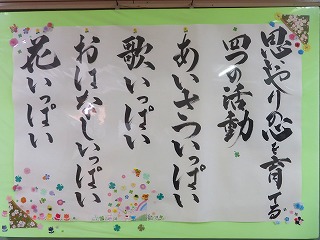 思いやりの心を育てる
四つの活動
あいさついっぱい
歌いっぱい
おはなしいっぱい
花いっぱい